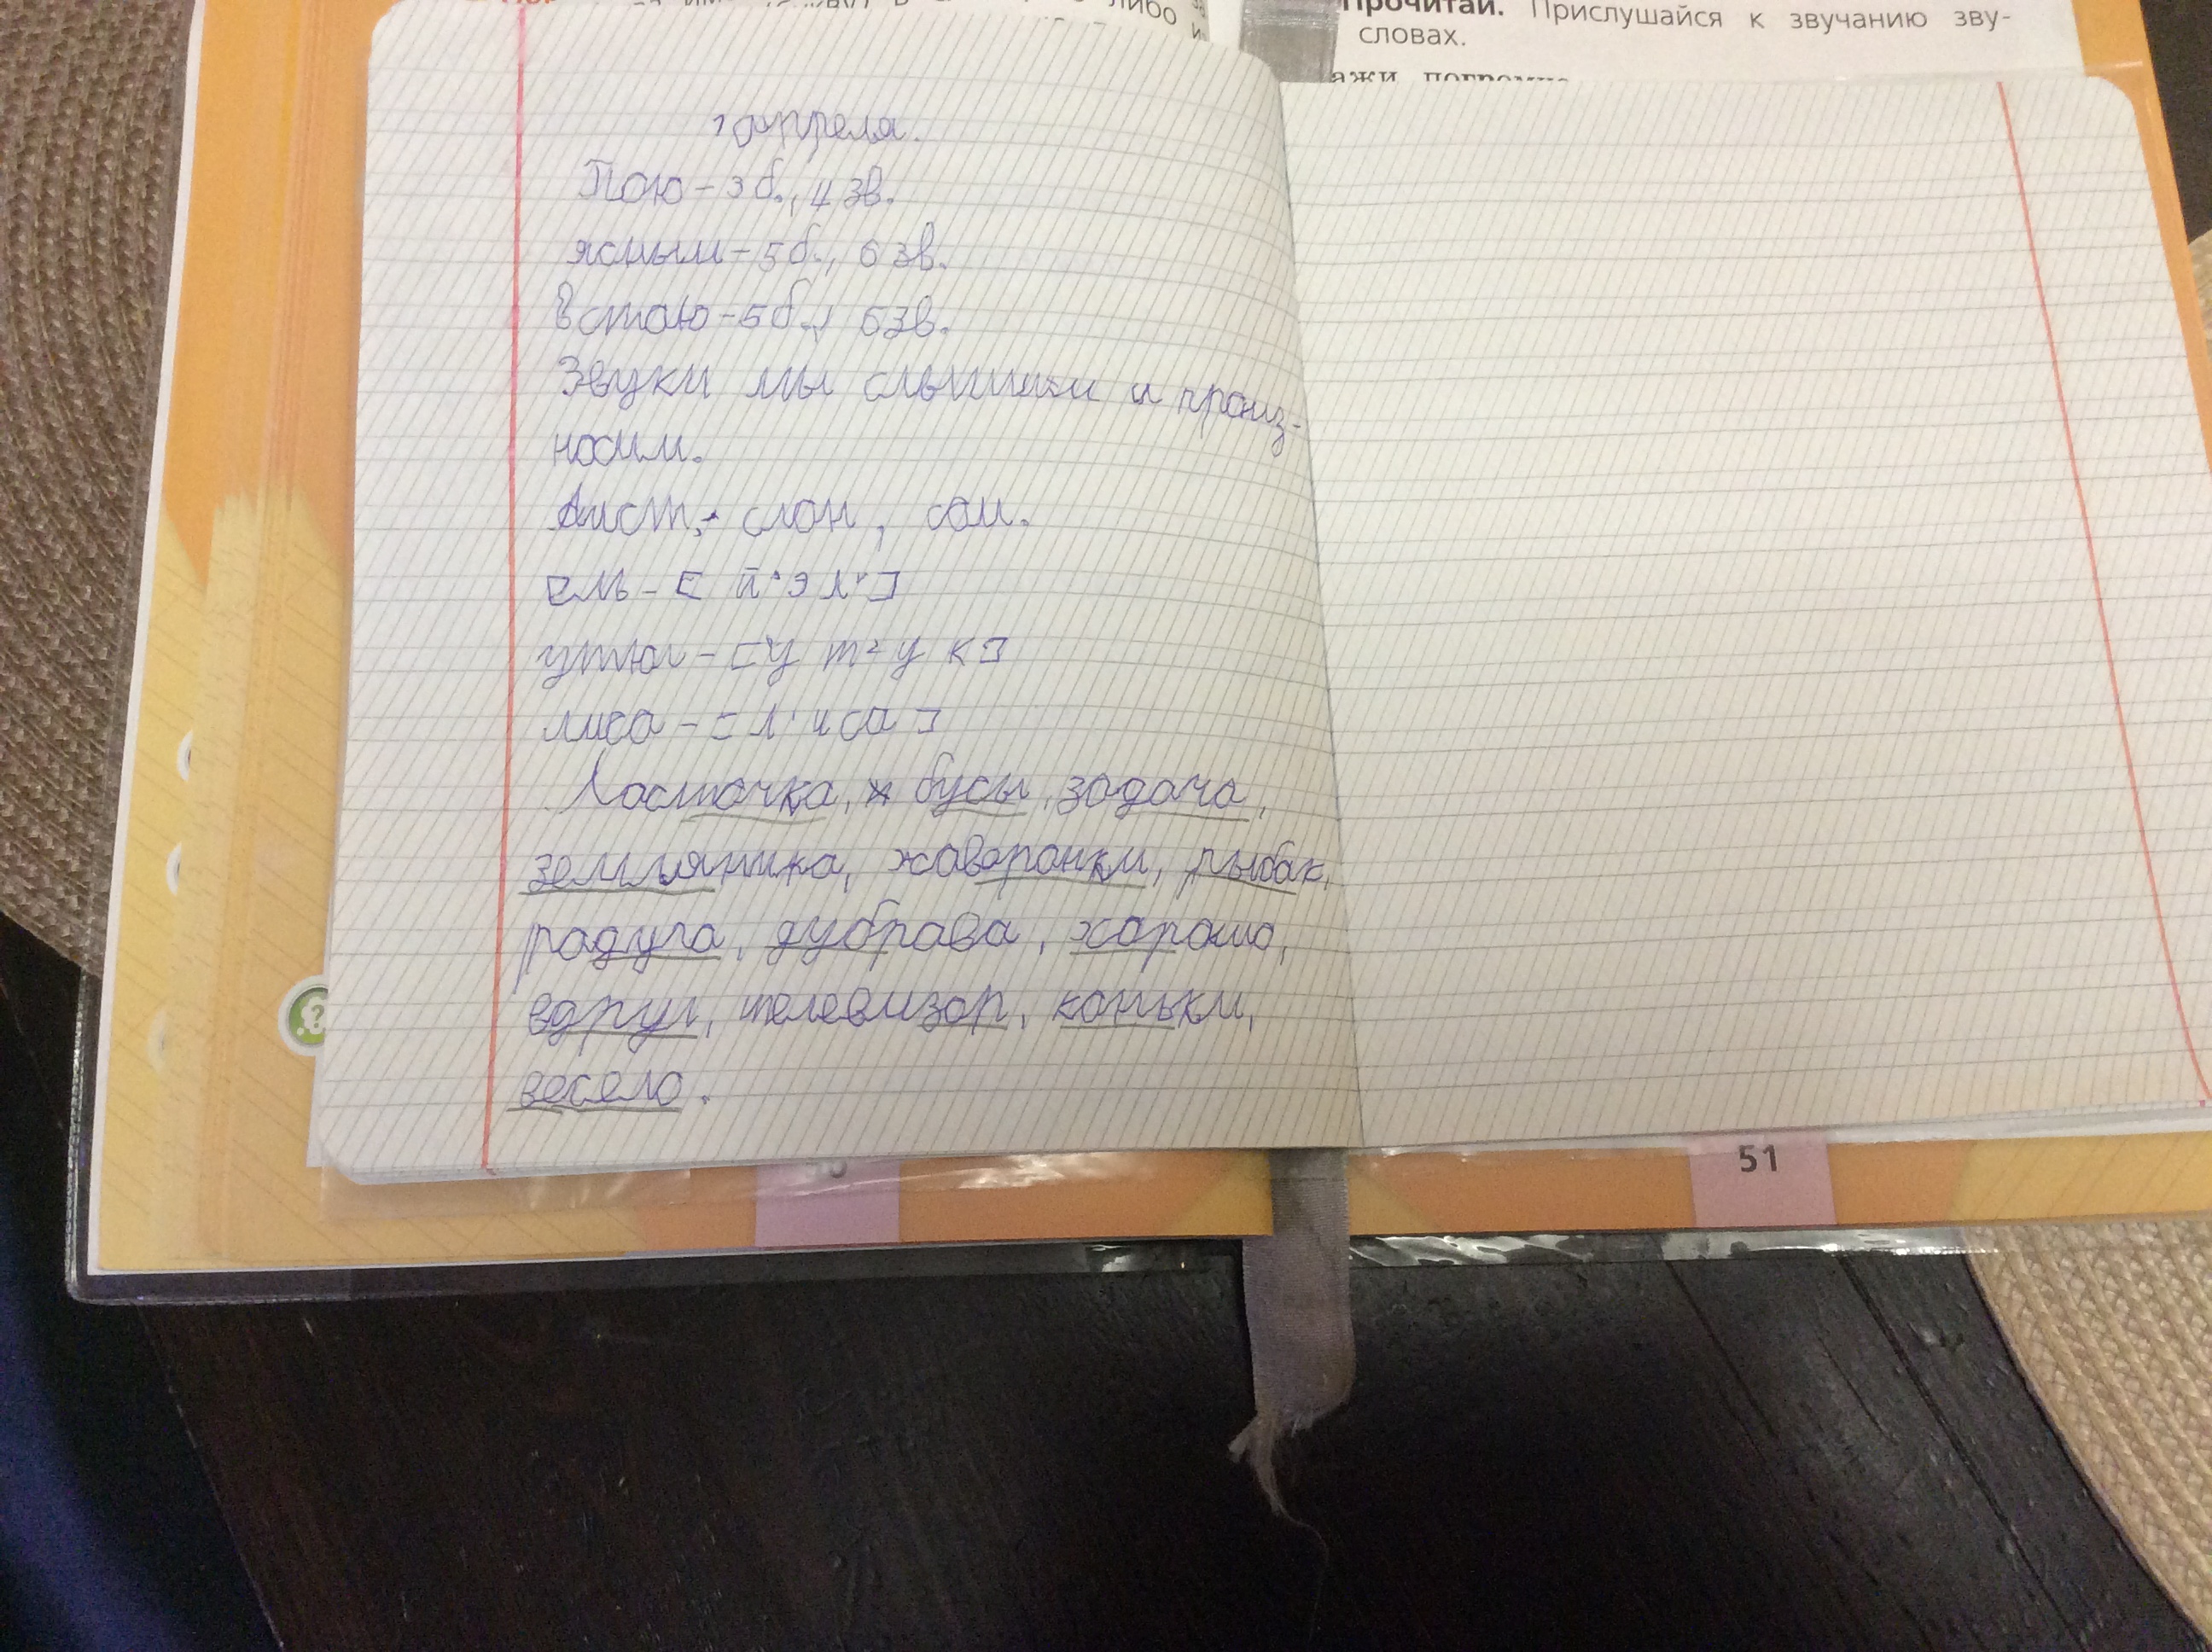 Прочитай. Прислушайся к звучанию зву-
словах.
ажи погромче
либо
апреля.
Пою - 3 б., 4 зв.
ясным - 5 б., 6 зв.
Встаю - 5 б., 6 зв.
Звуки мы слышим и произ-
носим.
Аист, слон, сом.
ель - [й'эл']
утюг - [ут'ук]
лиса - [л'иса]
Ласточка, бусы, задача,
земляника, жаворонки, рыбак,
радуга, дубрава, хорошо,
вдруг, телевизор, коньки,
весело.
51